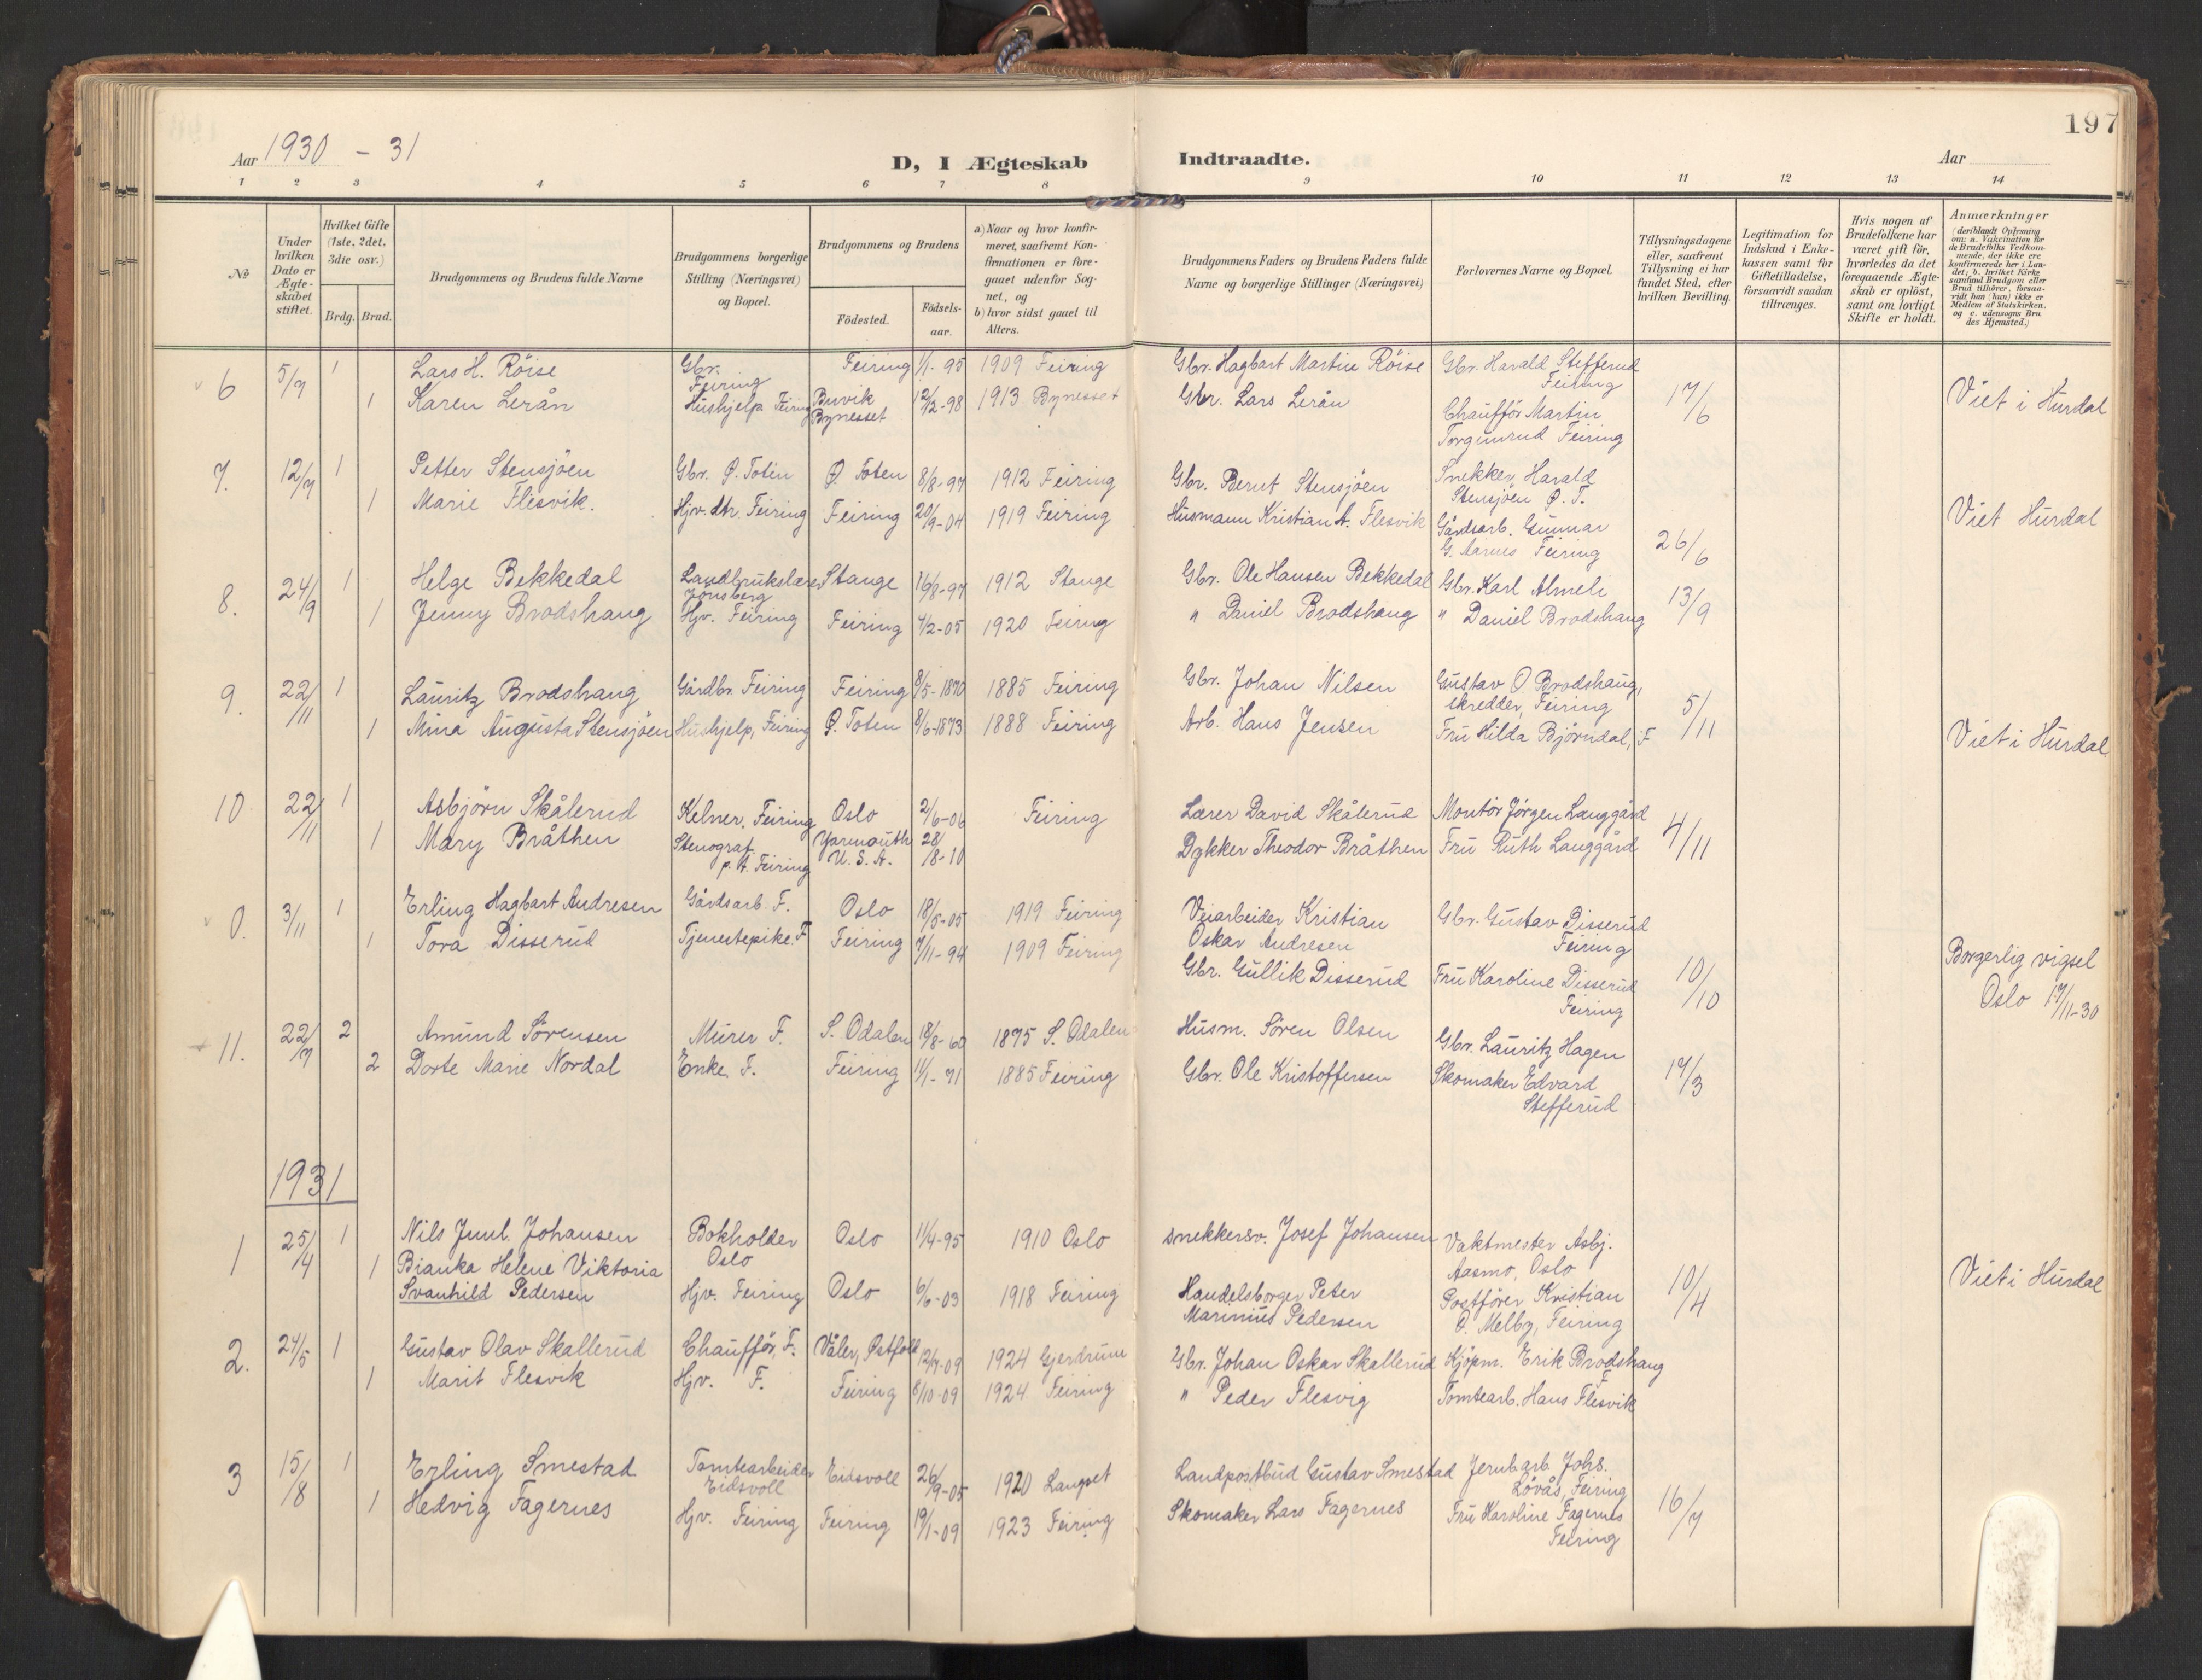 197
Aar 1930 - 31
D, I Ægteskab
Indtraadte.
Aar
1 2 3 4 5 6 7 8 9 10 11 12 13 14
No
Under hvilken Dato er Ægte-skabet stiftet.
Hvilket Gifte (1ste, 2det, 3die osv.)
Brdg. Brud.
Brudgommens og Brudens fulde Navne
Brudgommens borgerlige Stilling (Næringsvei) og Bopæl.
Brudgommens og Brudens
Födested.
Födsels-aar.
a) Naar og hvor konfir-meret, saafremt Kon-firmationen er fore-gaaet udenfor Sog-net, og
b) hvor sidst gaaet til Alters.
Brudgommens Faders og Brudens Faders fulde Navne og borgerlige Stillinger (Næringsvei)
Forlovernes Navne og Bopæl.
Tillysningsdagene eller, saafremt Tillysning ei har fundet Sted, efter hvilken Bevilling.
Legitimation for Indskud i Enke-kassen samt for Giftetilladelse, forsaavidt saadan tiltrænges.
Hvis nogen af Brudefolkene har været gift för, hvorledes da det foregaaende Ægte-skab er oplöst, samt om lovligt Skifte er holdt.
Anmærkninger (deriblandt Oplysning om: a. Vakcination for de Brudefolks Vedkom-mende, der ikke ere konfirmerede her i Lan-det; b. hvilket Kirke samfund Brudgom eller Brud tilhörer, forsaa-vidt han (hun) ikke er Medlem af Statskirken, og c. udensogns Bru des Hjemsted.)
6 5/7 1 Lars H. Röise Gbr. Feiring Feiring 1/1-95 1909 Feiring Gbr. Hagbart Martin Röise Gbr. Harald Stefferud Feiring 17/6
1 Karen Lerån Hushjelp Feiring Buvik Bynesset 12/2-98 1913 Bynesset Gbr. Lars Lerån Chaufför Martin Torgunrud Feiring Viet i Hurdal
7. 12/7 1 Petter Stensjöen Gbr. Ø. Toten Ø. Toten 8/8-97 1912 Feiring Gbr. Bernt Stensjöen Snekker Harald Stensjöen Ø. T.
1 Marie Flesvik. Hjv. dtr. Feiring Feiring 20/9-04 1919 Feiring Husmann Kristian A. Flesvik Gårdsarb. Gunnar G. Aarnes Feiring 26/6 Viet Hurdal
8. 24/9 1 Helge Bekkedal Landbrukslærer Jönsberg Stange 16/8-97 1912 Stange Gbr. Ole Hansen Bekkedal Gbr. Karl Almeli 13/9
1 Jenny Brodshaug Hjv. Feiring Feiring 4/2-05 1920 Feiring " Daniel Brodshaug " Daniel Brodshaug
9. 22/11 1 Lauritz Brodshaug Gårdbr. Feiring Feiring 8/5-1870 1885 Feiring Gbr. Johan Nilsen Gustav O. Brodshaug, skredder, Feiring 5/11
1 Mina Augusta Stensjöen Hushjelp, Feiring Ø. Toten 8/6-1873 1888 Feiring Arb. Hans Jensen Fru Hilda Björndal, F Viet i Hurdal
10 22/11 1 Asbjörn Skålerud Kelner, Feiring Oslo 2/6-06 Feiring Lærer David Skålerud Montör Jørgen Langgård 4/11
1 Mary Bråthen Stenograf p.t. Feiring Yarmouth U. S. A. 28/8-10 Dykker Theodor Bråthen Fru Ruth Langgård
0. 3/11 1 Erling Hagbart Andresen Gårdsarb. F. Oslo 18/5-05 1919 Feiring Veiarbeider Kristian Oskar Andresen Gbr. Gustav Disserud Feiring
1 Tora Disserud Tjenestepike. F Feiring 7/11-94 1909 Feiring Gbr. Gullik Disserud Fru Karoline Disserud Feiring 10/10 Borgerlig vigsel Oslo 17/11-30
11. 22/7 2 Amund Sörensen Murer F. S. Odalen 18/8-60 1875 S. Odalen Husm. Sören Olsen Gbr. Lauritz Hagen
2 Dorte Marie Nordal Enke. F. Feiring 11/1-71 1885 Feiring Gbr. Ole Kristoffersen Skomaker Edvard Stefferud 17/3
1931
1 25/4 1 Nils Juul. Johansen Bokholder Oslo Oslo 11/4-95 1910 Oslo Snekkersv. Josef Johansen Vaktmester Asbj. Aasmo, Oslo
1 Bianka Helene Viktoria Svanhild Pedersen Hjv. Feiring Oslo 6/6-03 1918 Feiring Handelsborger Peter Marinius Pedersen Postförer Kristian O. Melby, Feiring 10/4 Viet i Hurdal
2. 24/5 1 Gustav Olav Skallerud Chaufför, F. Våler, Østfold 12/7-09 1924 Gjerdrum Gbr. Johan Oskar Skallerud Kjöpm. Erik Brodshaug F
1 Marit Flesvik Hjv. F. Feiring 8/10-09 1924 Feiring " Peder Flesvig Tomtearb. Hans Flesvik
3 15/8 1 Erling Smestad Tomtearbeider Eidsvoll Eidsvoll 26/9-05 1920 Langset Landpostbud Gustav Smestad Jernb.arb. Johs. Lövås, Feiring
1 Hedvig Fagernes Hjv. Feiring Feiring 19/1-09 1923 Feiring Skomaker Lars Fagernes Fru Karoline Fagernes Feiring 16/7